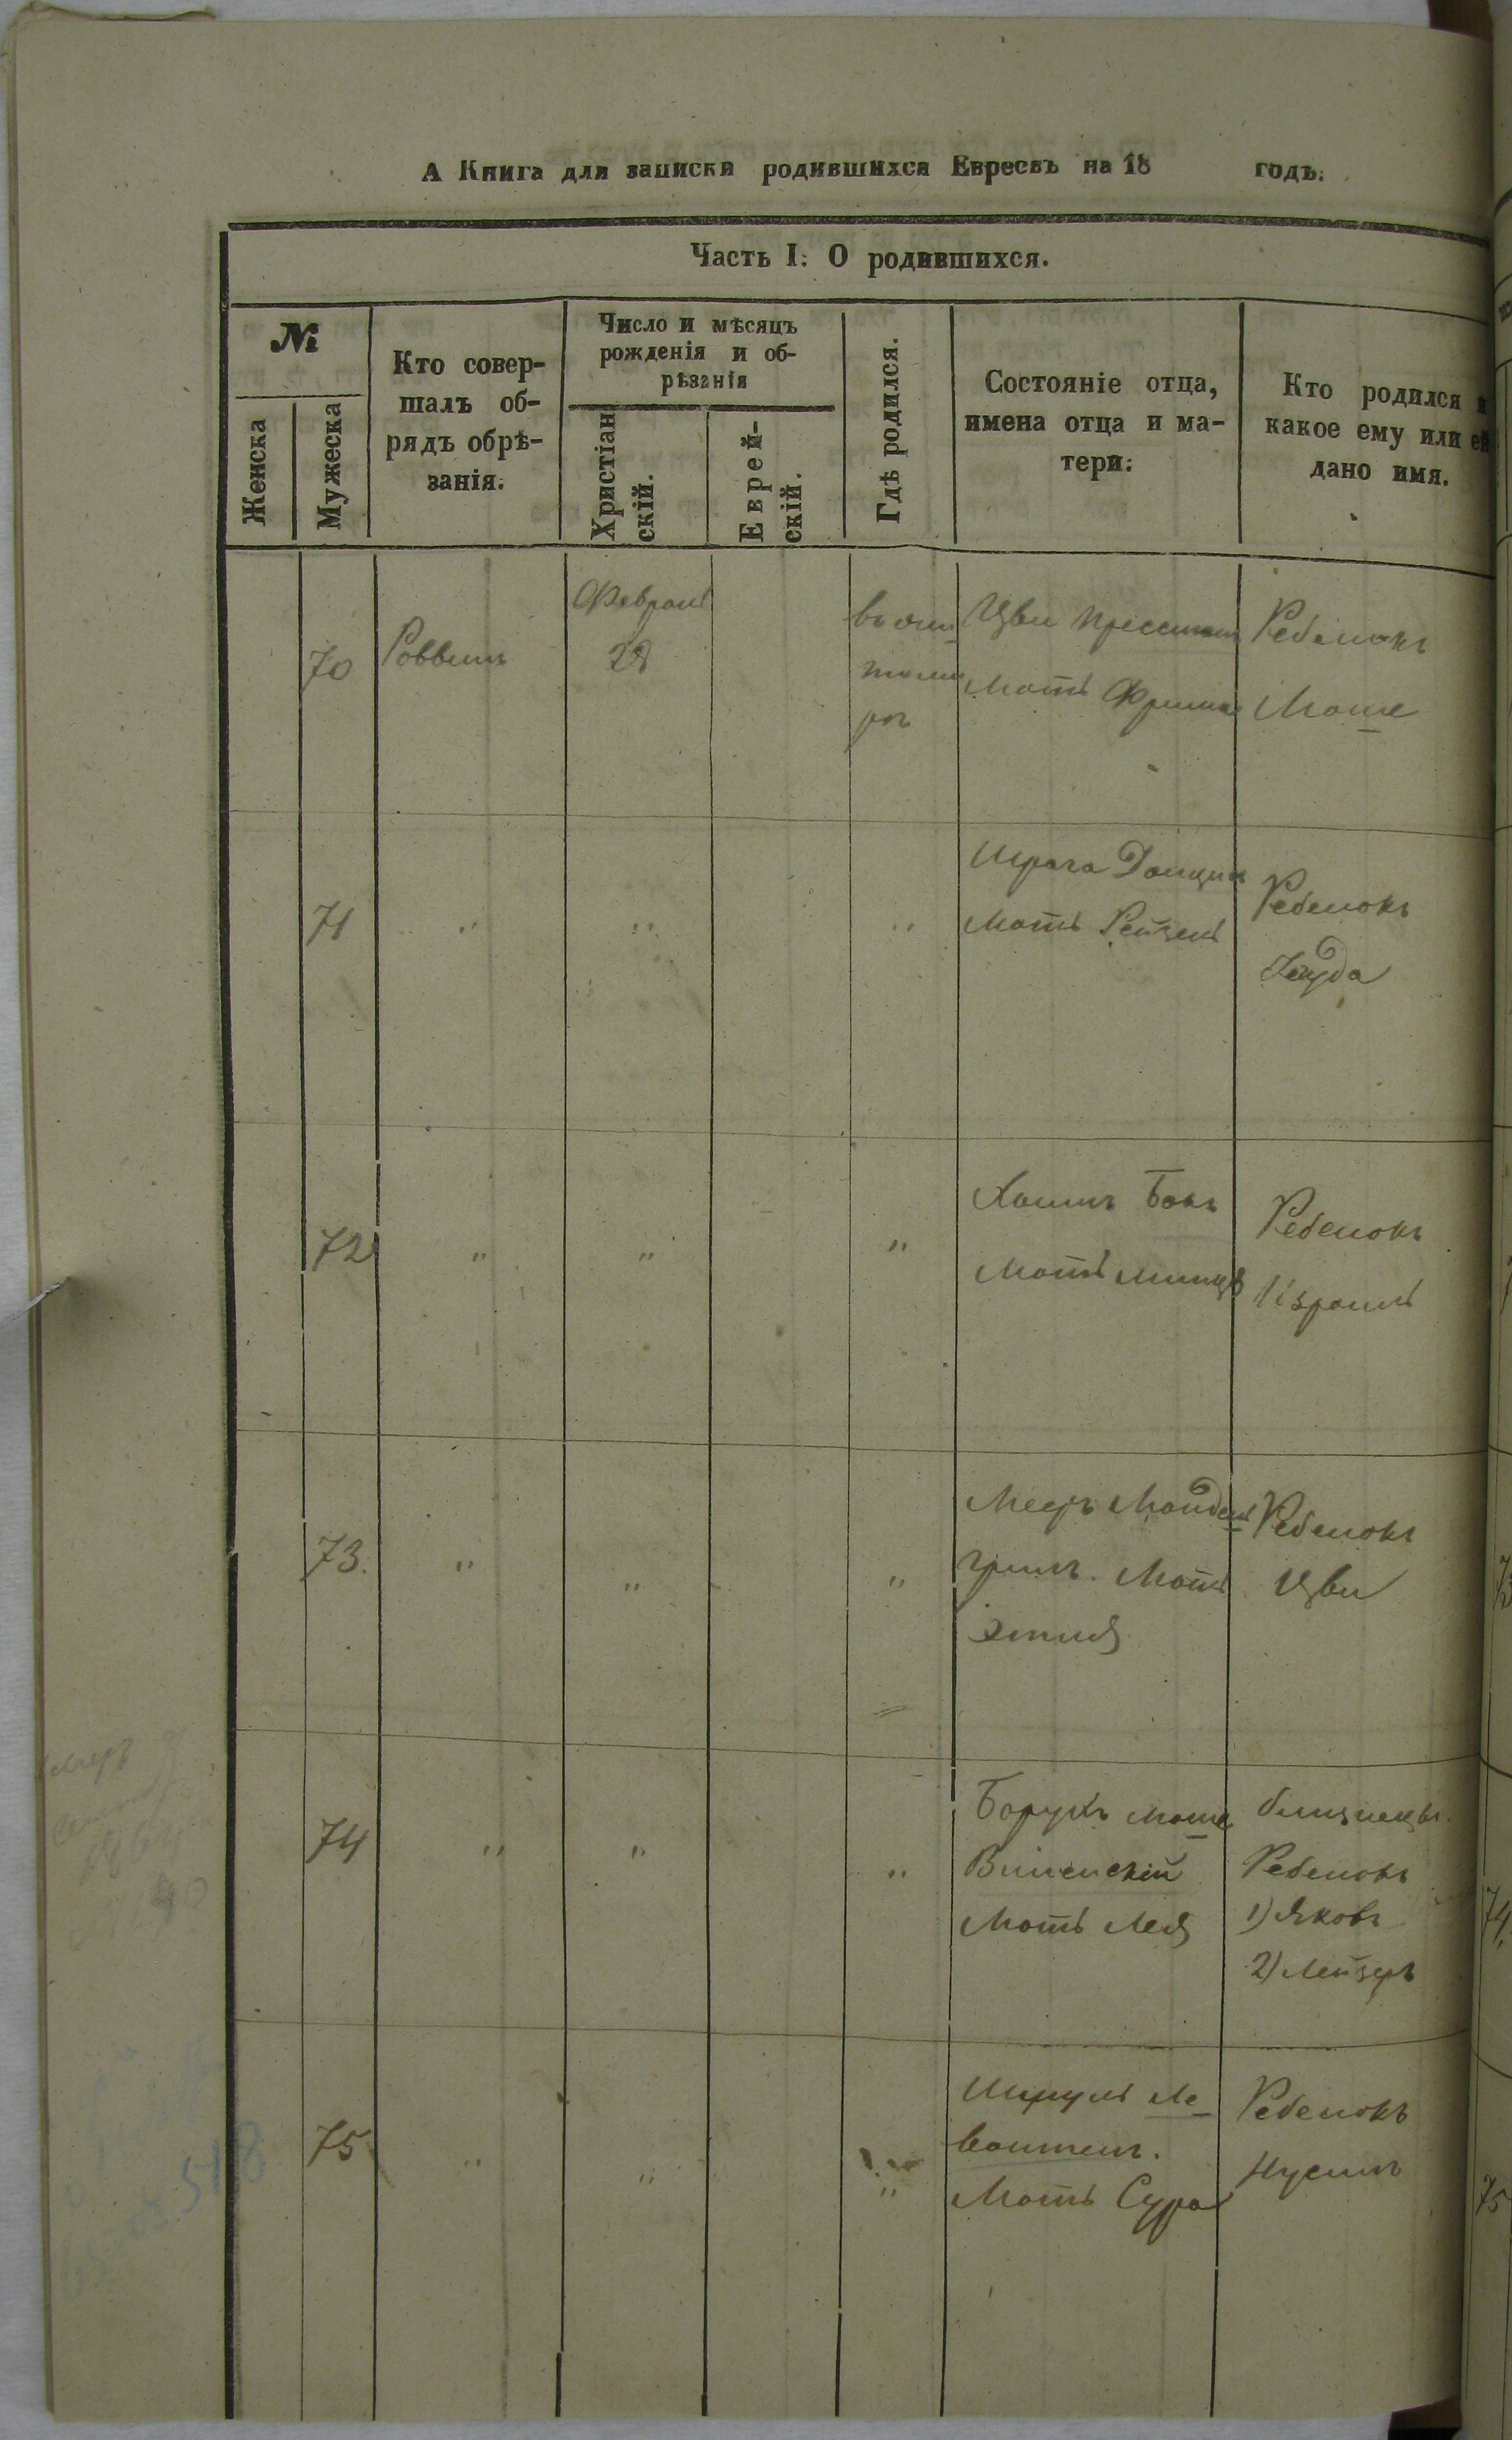 А Книга для записки родившихся Евреевъ на 18 годъ.
Часть I. О родившихся.
№
Женска
Мужеска
Кто совер-
шалъ об-
рядъ обрѣ-
занія.
Число и мѣсяцъ
рожденія и об-
рѣзанія
Христіан
скій.
Еврей-
скій.
Гдѣ родился.
Состояніе отца,
имена отца и ма-
тери.
Кто родился и
какое ему или ей
дано имя.
70
Раввинъ
Февраль
28
въ жи
томи
рѣ
Цви
Мать Фрима
Ребенокъ
Моше
71
"
"
"
Шрага
Мать Рейзель
Ребенокъ
Іегуда
72
"
"
"
Хаимъ Бокъ
Мать
Ребенокъ
Израиль
73.
"
"
"
Мееръ Майдель
гримъ. Мать
Этля
Ребенокъ
Цви
74
"
"
"
Борухъ Моше
Виленскій
Мать Лея
близнецы.
Ребенокъ
1) Яковъ
2) Лейзеръ
75
"
"
"
Шрулъ Ле
вантенъ.
Мать Сура
Ребенокъ
Нусинъ
умеръ
518
73
74
75